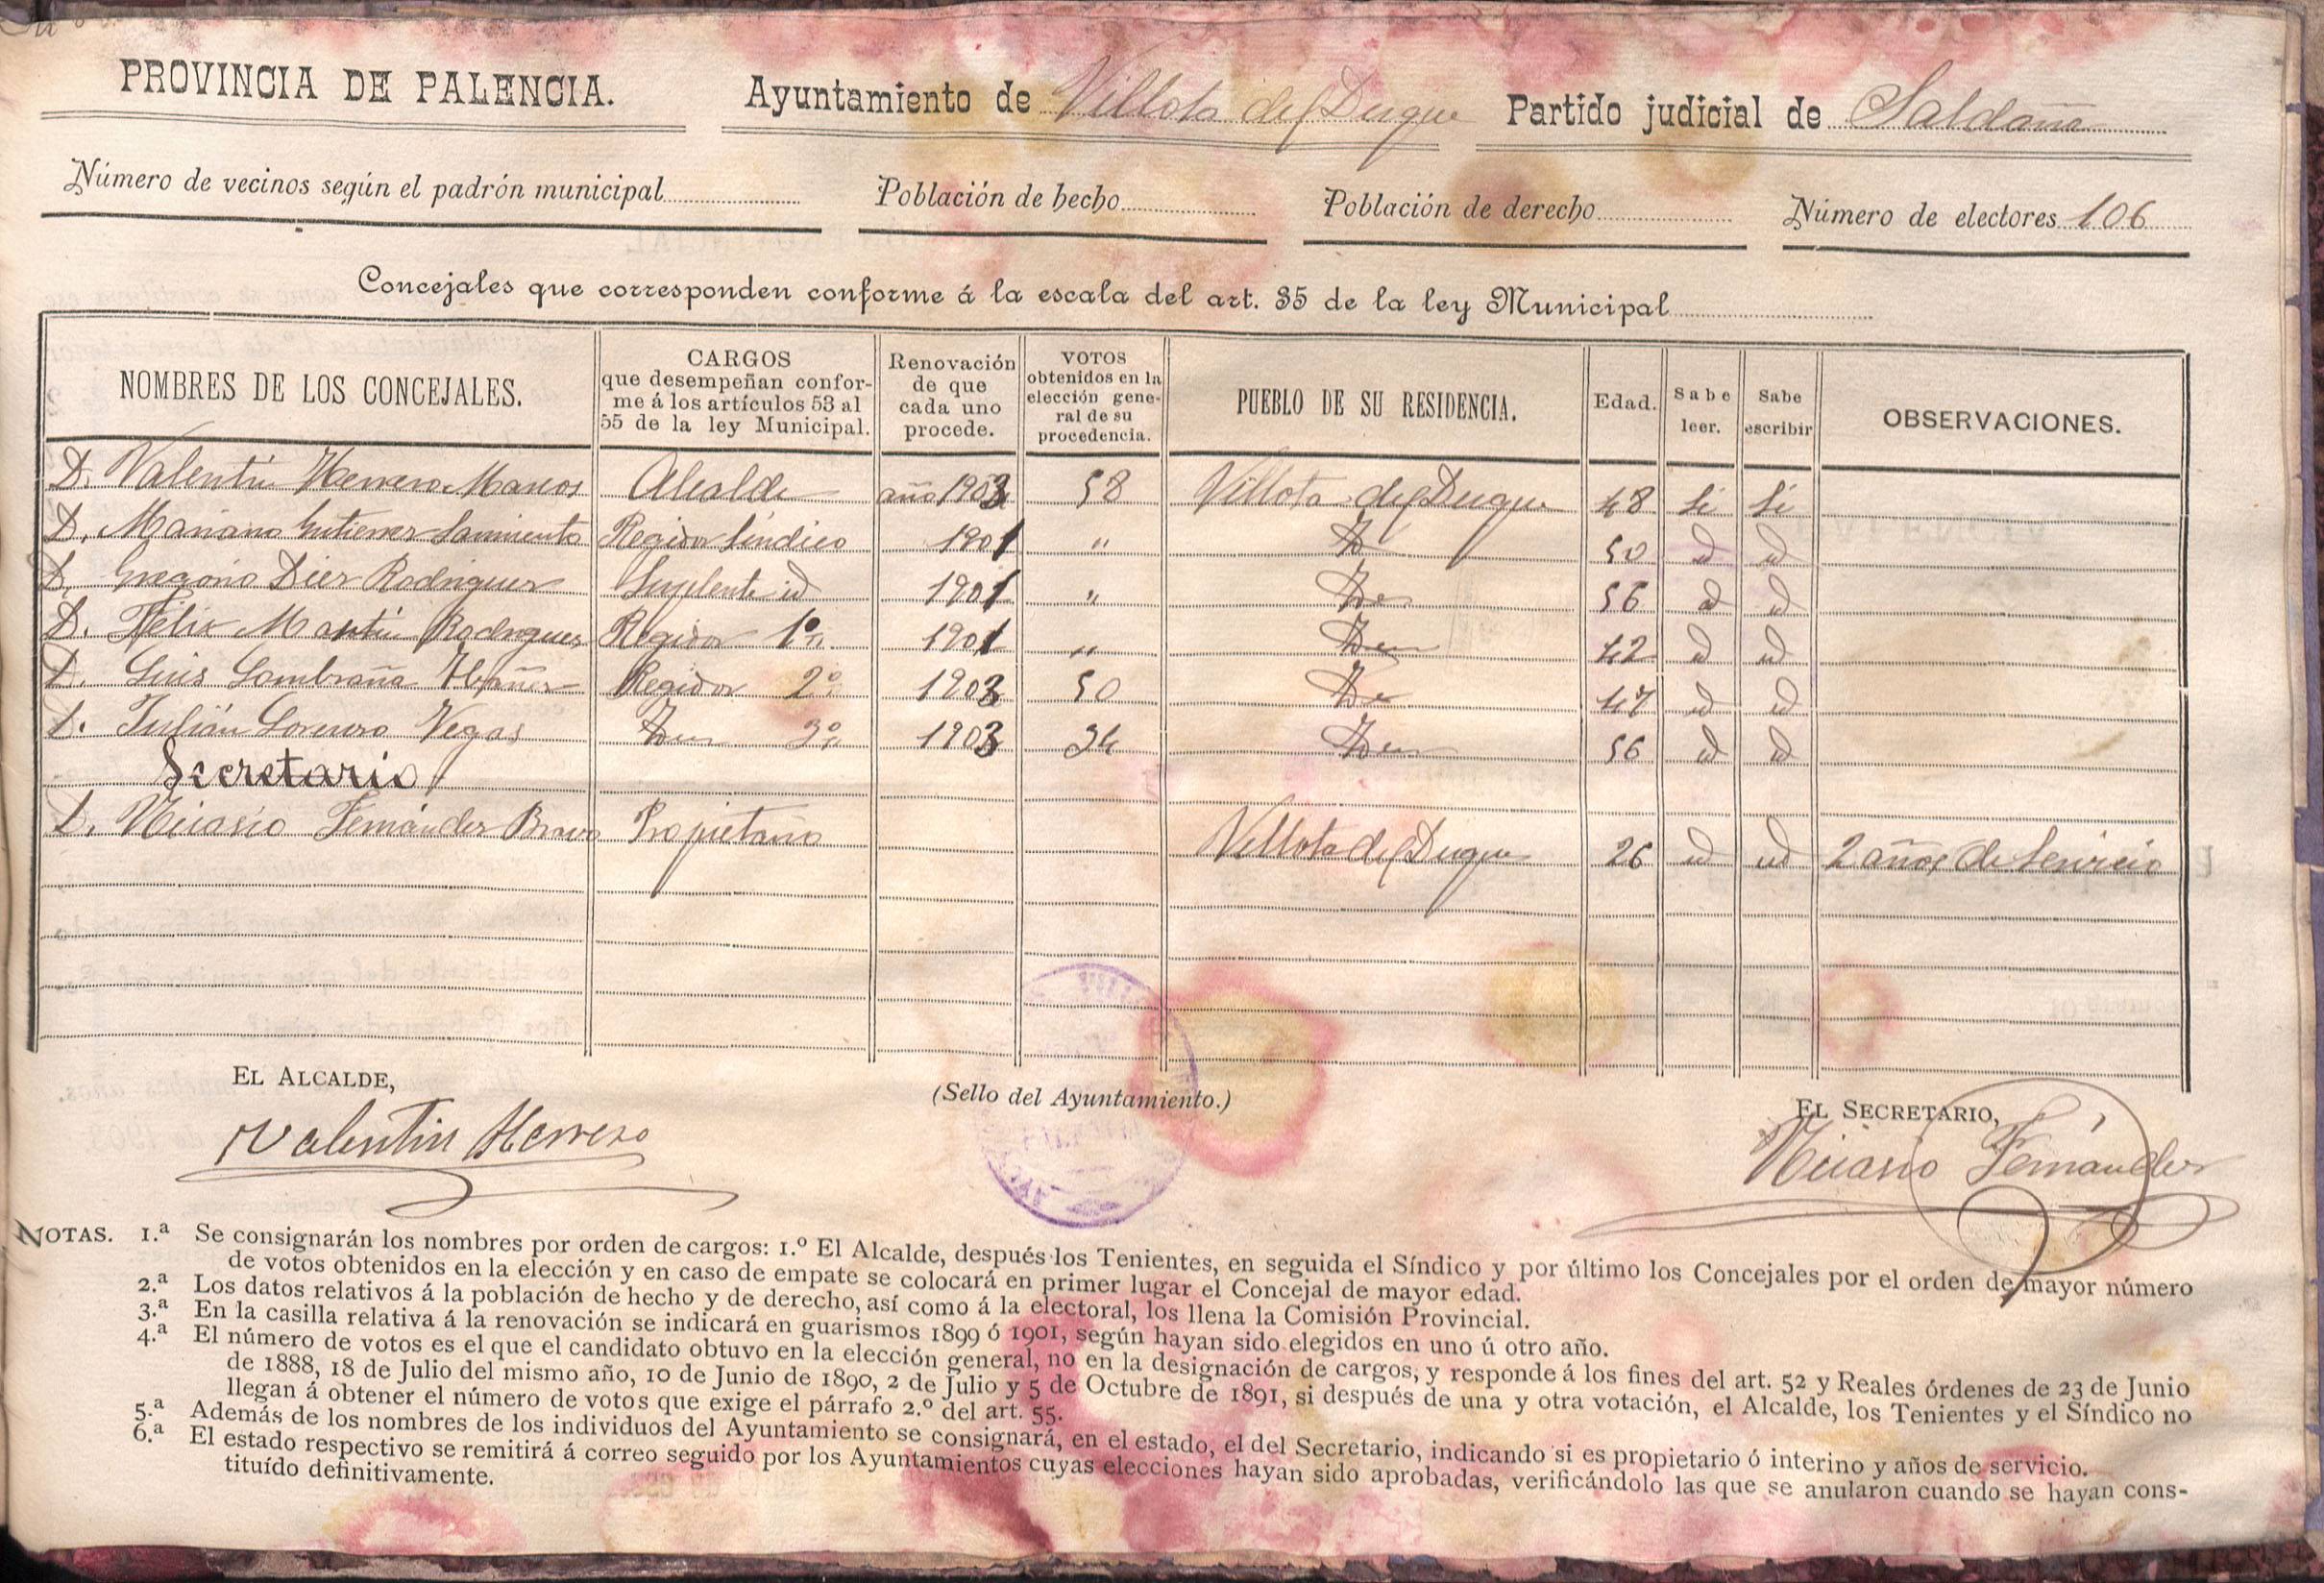 PROVINCIA DE PALENCIA. Ayuntamiento de Villota del Duque Partido judicial de Saldaña
Número de vecinos según el padrón municipal Población de hecho Población de derecho Número de electores 106
Concejales que corresponden conforme á la escala del art. 35 de la ley Municipal
NOMBRES DE LOS CONCEJALES. CARGOS que desempeñan conforme á los artículos 53 al 55 de la ley Municipal. Renovación de que cada uno procede. VOTOS obtenidos en la elección general de su procedencia. PUEBLO DE SU RESIDENCIA. Edad. Sabe leer. Sabe escribir OBSERVACIONES.
D. Valentin Herrero Marcos Alcalde año 1903 58 Villota del Duque 48 Si Si
D. Mariano Gutierrez Sarmiento Regidor Síndico 1901 " Id 50 id id
D. Gregorio Diez Rodriguez Suplente id 1901 " Idem 56 id id
D. Félix Martín Rodriguez Regidor 1º 1901 " Idem 42 id id
D. Luis Lombraña Ibañez Regidor 2º 1903 50 Idem 47 id id
D. Julián Lorenzo Vegas Idem 3º 1903 34 Idem 56 id id
Secretario
D. Nicasio Fernández Bravo Propietario Villota del Duque 26 id id 2 años de Servicio
EL ALCALDE, (Sello del Ayuntamiento.) EL SECRETARIO,
Valentin Herrero Nicasio Fernández
NOTAS. 1.ª Se consignarán los nombres por orden de cargos: 1.º El Alcalde, después los Tenientes, en seguida el Síndico y por último los Concejales por el orden de mayor número
de votos obtenidos en la elección y en caso de empate se colocará en primer lugar el Concejal de mayor edad.
2.ª Los datos relativos á la población de hecho y de derecho, así como á la electoral, los llena la Comisión Provincial.
3.ª En la casilla relativa á la renovación se indicará en guarismos 1899 ó 1901, según hayan sido elegidos en uno ú otro año.
4.ª El número de votos es el que el candidato obtuvo en la elección general, no en la designación de cargos, y responde á los fines del art. 52 y Reales órdenes de 23 de Junio
de 1888, 18 de Julio del mismo año, 10 de Junio de 1890, 2 de Julio y 5 de Octubre de 1891, si después de una y otra votación, el Alcalde, los Tenientes y el Síndico no
llegan á obtener el número de votos que exige el párrafo 2.º del art. 55.
5.ª Además de los nombres de los individuos del Ayuntamiento se consignará, en el estado, el del Secretario, indicando si es propietario ó interino y años de servicio.
6.ª El estado respectivo se remitirá á correo seguido por los Ayuntamientos cuyas elecciones hayan sido aprobadas, verificándolo las que se anularon cuando se hayan cons-
tituído definitivamente.